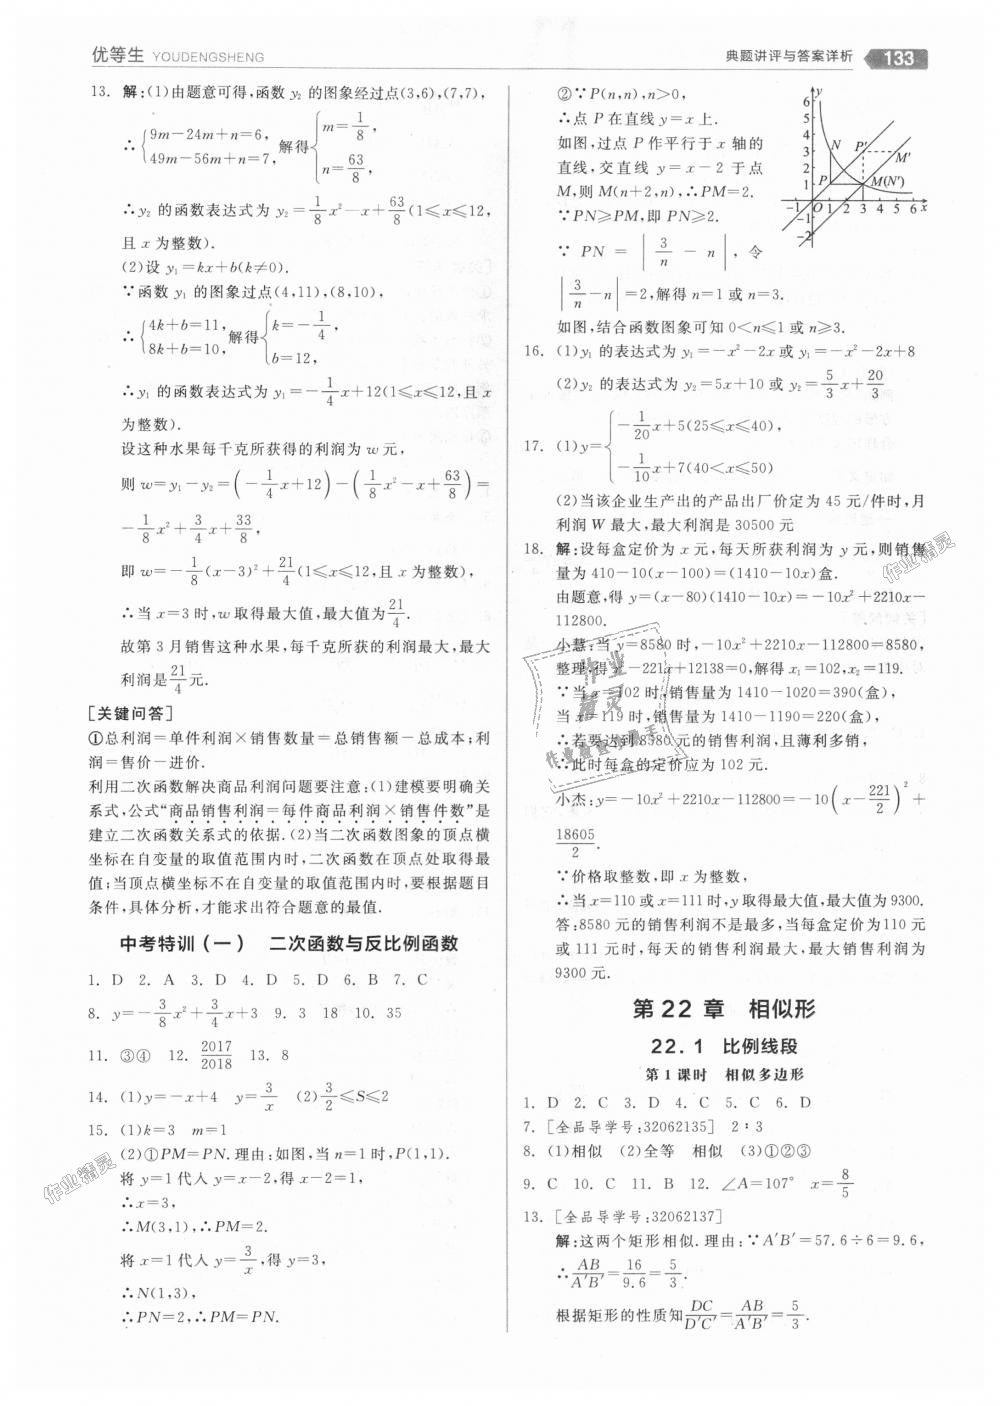 优等生 YOUDENGSHENG
典题讲评与答案详析 133
13. 解:(1)由题意可得,函数 y₂ 的图象经过点(3,6),(7,7),
∴{9m-24m+n=6, 49m-56m+n=7, 解得{m=1/8, n=63/8,
∴y₂ 的函数表达式为 y₂=1/8x²-x+63/8(1≤x≤12,
且 x 为整数).
(2)设 y₁=kx+b(k≠0).
∵函数 y₁ 的图象过点(4,11),(8,10),
∴{4k+b=11, 8k+b=10, 解得{k=-1/4, b=12,
∴y₁ 的函数表达式为 y₁=-1/4x+12(1≤x≤12,且 x
为整数).
设这种水果每千克所获得的利润为 w 元,
则 w=y₁-y₂=(-1/4x+12)-(1/8x²-x+63/8)=
-1/8x²+3/4x+33/8,
即 w=-1/8(x-3)²+21/4(1≤x≤12,且 x 为整数),
∴当 x=3 时,w 取得最大值,最大值为21/4.
故第 3 月销售这种水果,每千克所获的利润最大,最大
利润是21/4元.
[关键问答]
①总利润=单件利润×销售数量=总销售额-总成本;利
润=售价-进价.
利用二次函数解决商品利润问题要注意:(1)建模要明确关
系式,公式“商品销售利润=每件商品利润×销售件数”是
建立二次函数关系式的依据.(2)当二次函数图象的顶点横
坐标在自变量的取值范围内时,二次函数在顶点处取得最
值;当顶点横坐标不在自变量的取值范围内时,要根据题目
条件,具体分析,才能求出符合题意的最值.
中考特训(一) 二次函数与反比例函数
1. D 2. A 3. D 4. D 5. D 6. B 7. C
8. y=-3/8x²+3/4x+3 9. 3 18 10. 35
11. ③④ 12. 2017/2018 13. 8
14. (1)y=-x+4 y=3/x (2)3/2≤S≤2
15. (1)k=3 m=1
(2)①PM=PN.理由:如图,当 n=1 时,P(1,1).
将 y=1 代入 y=x-2,得 x-2=1,
∴x=3,
∴M(3,1),∴PM=2.
将 x=1 代入 y=3/x,得 y=3,
∴N(1,3),
∴PN=2,∴PM=PN.
②∵P(n,n),n>0,
∴点 P 在直线 y=x 上.
如图,过点 P 作平行于 x 轴的
直线,交直线 y=x-2 于点
M,则 M(n+2,n),∴PM=2.
∵PN≥PM,即 PN≥2.
∵ PN = |3/n - n|,令
|3/n-n|=2,解得 n=1 或 n=3.
如图,结合函数图象可知 0<n≤1 或 n≥3.
y
6
5
4
3
2
1
N P' M'
P M(N')
-1 O 1 2 3 4 5 6 x
-1
-2
16. (1)y₁ 的表达式为 y₁=-x²-2x 或 y₁=-x²-2x+8
(2)y₂ 的表达式为 y₂=5x+10 或 y₂=5/3x+20/3
17. (1)y={-1/20x+5(25≤x≤40), -1/10x+7(40<x≤50)
(2)当该企业生产出的产品出厂价定为 45 元/件时,月
利润 W 最大,最大利润是 30500 元
18. 解:设每盒定价为 x 元,每天所获利润为 y 元,则销售
量为 410-10(x-100)=(1410-10x)盒.
由题意,得 y=(x-80)(1410-10x)=-10x²+2210x-
112800.
小慧:当 y=8580 时,-10x²+2210x-112800=8580,
整理,得 x²-221x+12138=0,解得 x₁=102,x₂=119.
∵当 x=102 时,销售量为 1410-1020=390(盒),
当 x=119 时,销售量为 1410-1190=220(盒),
∴若要达到 8580 元的销售利润,且薄利多销,
∴此时每盒的定价应为 102 元.
小杰:y=-10x²+2210x-112800=-10(x-221/2)²+
18605/2.
∵价格取整数,即 x 为整数,
∴当 x=110 或 x=111 时,y 取得最大值,最大值为 9300.
答:8580 元的销售利润不是最多,当每盒定价为110 元
或 111 元时,每天的销售利润最大,最大销售利润为
9300 元.
第 22 章 相似形
22.1 比例线段
第 1 课时 相似多边形
1. D 2. C 3. D 4. C 5. C 6. D
7. [全品导学号:32062135] 2∶3
8. (1)相似 (2)全等 相似 (3)①②③
9. C 10. C 11. B 12. ∠A=107° x=8/5
13. [全品导学号:32062137]
解:这两个矩形相似.理由:∵A'B'=57.6÷6=9.6,
∴AB/A'B'=16/9.6=5/3.
根据矩形的性质知DC/D'C'=AB/A'B'=5/3.
作业精灵
作业精灵
作业
精灵